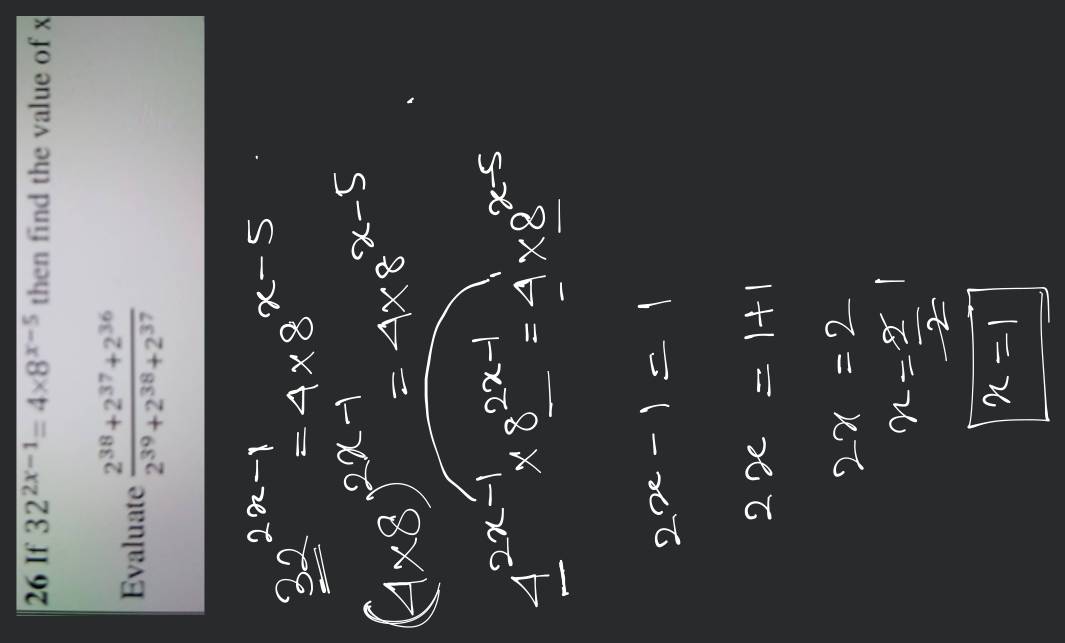 26 If 32²ˣ⁻¹ = 4×8ˣ⁻⁵ then find the value of x
Evaluate (2³⁸+2³⁷+2³⁶)/(2³⁹+2³⁸+2³⁷)
32²ˣ⁻¹ = 4×8ˣ⁻⁵
(4×8)²ˣ⁻¹ = 4×8ˣ⁻⁵
4²ˣ⁻¹ × 8²ˣ⁻¹ = 4×8ˣ⁻⁵
2x-1 = 1
2x = 1+1
2x = 2
x = 2/2 1
x = 1